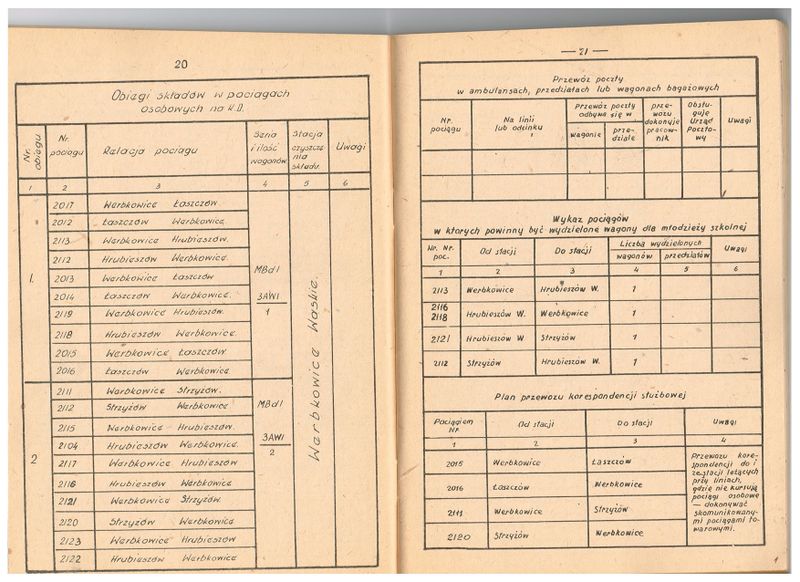 20
Obiegi składów w pociągach
osobowych na K.D.
Nr. obiegu
Nr. pociągu
Relacja pociągu
Seria i ilość wagonów
Stacja czyszcze-nia składu
Uwagi
1 2 3 4 5 6
1.
2017 Werbkowice Łaszczów
2012 Łaszczów Werbkowice
2113 Werbkowice Hrubieszów
2112 Hrubieszów Werbkowice
2013 Werbkowice Łaszczów
2014 Łaszczów Werbkowice.
2119 Werbkowice Hrubieszów.
2118 Hrubieszów Werbkowice.
2015 Werbkowice Łaszczów
2016 Łaszczów Werbkowice.
MBd1
3AW1
1
2
2111 Werbkowice Strzyżów
2112 Strzyżów Werbkowice
2115 Werbkowice Hrubieszów.
2104 Hrubieszów Werbkowice.
2117 Werbkowice Hrubieszów
2116 Hrubieszów Werbkowice
2121 Werbkowice Strzyżów.
2120 Strzyżów Werbkowice
2123 Werbkowice Hrubieszów
2122 Hrubieszów Werbkowice
MBd1
3AW1
2
Werbkowice Wąskie.
— 21 —
Przewóz poczty
w ambulansach, przedziałach lub wagonach bagażowych
Nr. pociągu
Na linii lub odcinku
Przewóz poczty odbywa się w
wagonie
prze-dziale
prze-wozu dokonuje pracow-nik
Obsłu-guje Urząd Poczto-wy
Uwagi
Wykaz pociągów
w których powinny być wydzielone wagony dla młodzieży szkolnej
Nr. Nr. poc.
Od stacji
Do stacji
Liczba wydzielonych
wagonów
przedziałów
Uwagi
1 2 3 4 5 6
2113 Werbkowice Hrubieszów W. 1
2116
2118 Hrubieszów W. Werbkowice 1
2121 Hrubieszów W Strzyżów 1
2112 Strzyżów Hrubieszów W. 1
Plan przewozu korespondencji służbowej
Pociągiem Nr.
Od stacji
Do stacji
Uwagi
1 2 3 4
2015 Werbkowice Łaszczów
2016 Łaszczów Werbkowice
2111 Werbkowice Strzyżów
2120 Strzyżów Werbkowice
Przewozu kore-
spondencji do i
ze stacji leżących
przy liniach,
gdzie nie kursują
pociągi osobowe
— dokonywać
skomunikowany-
mi pociągami to-
warowymi.